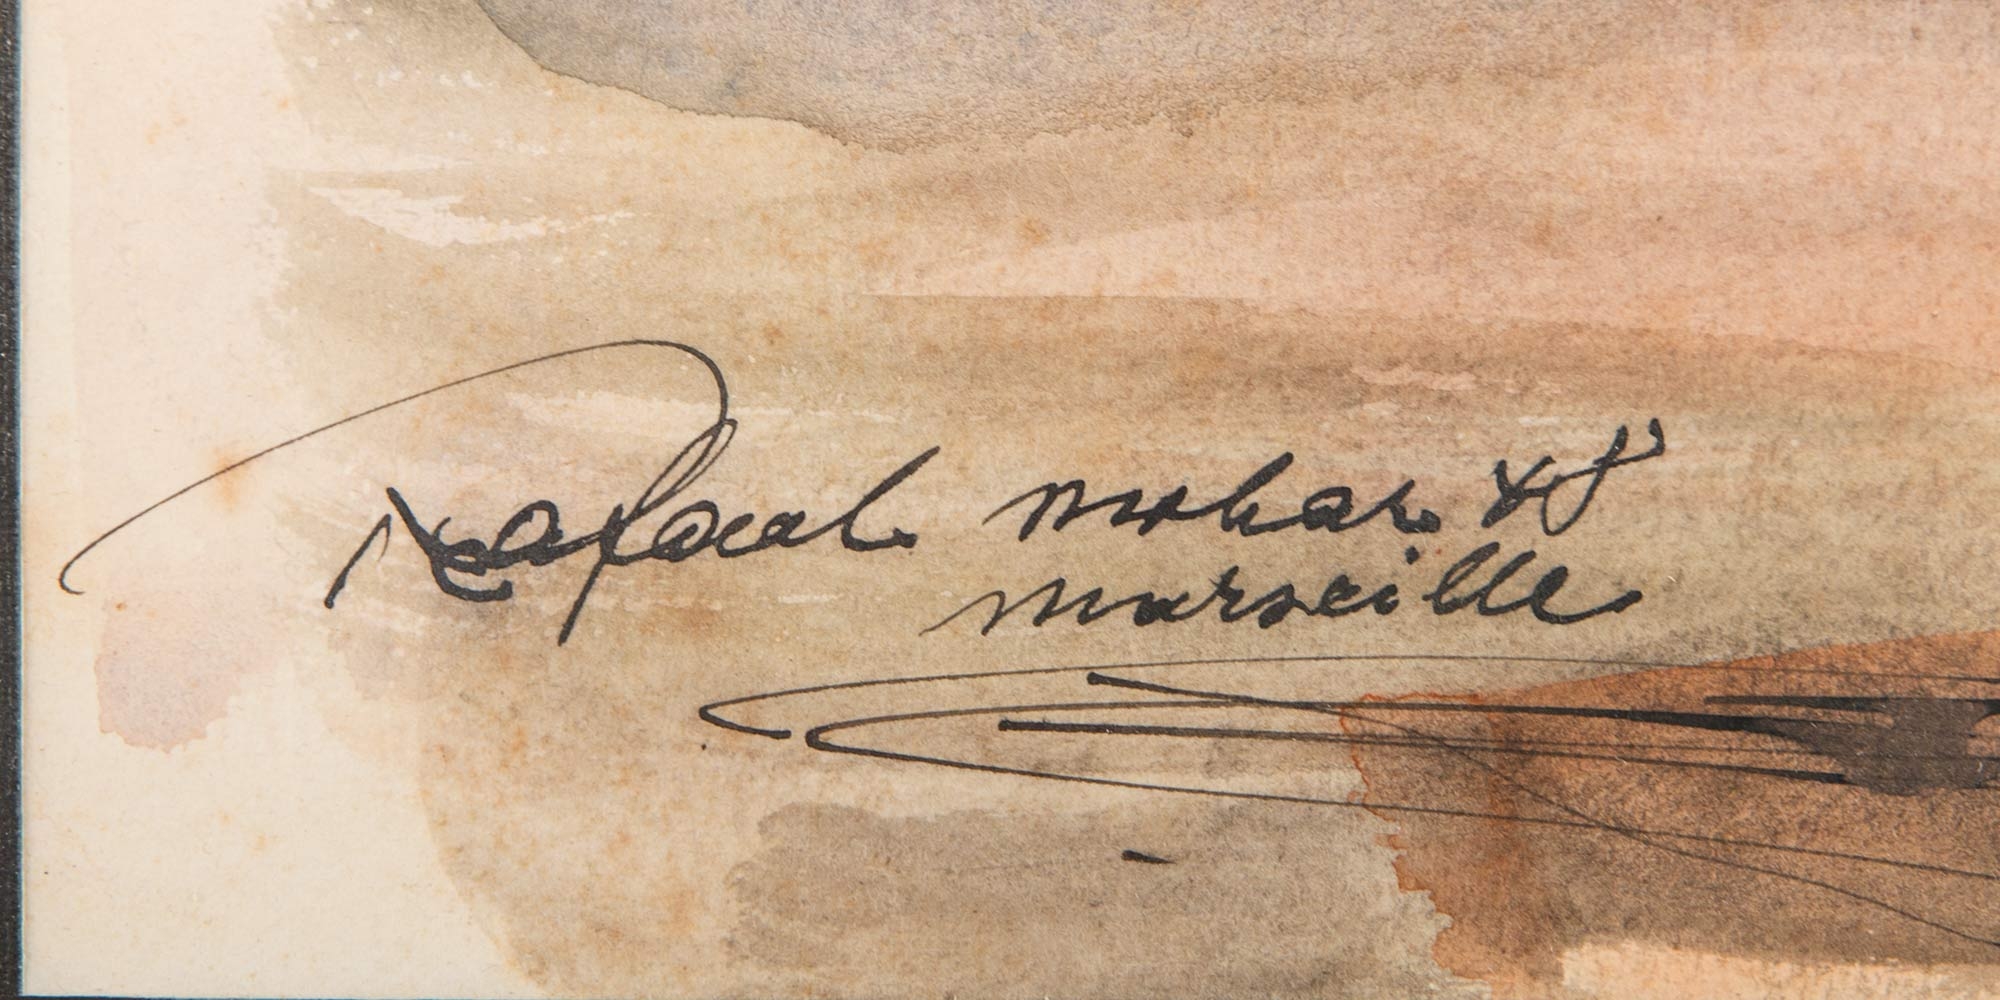 Rafael Mohar
Marseille